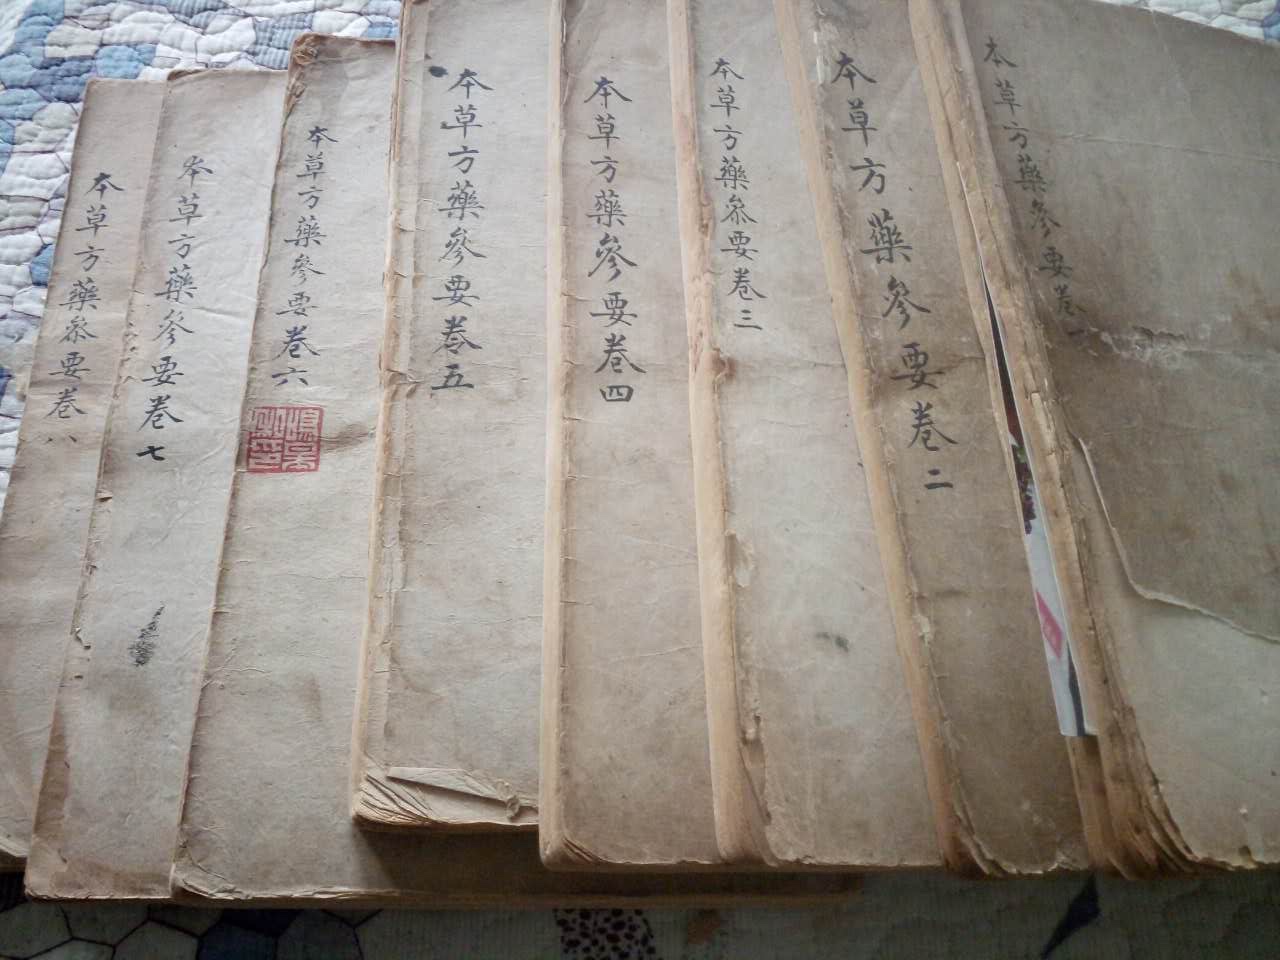 本草方藥參要卷一
本草方藥參要卷二
本草方藥叅要卷三
本草方藥參要卷四
本草方藥參要卷五
本草方藥參要卷六
本草方藥參要卷七
本草方藥叅要卷八